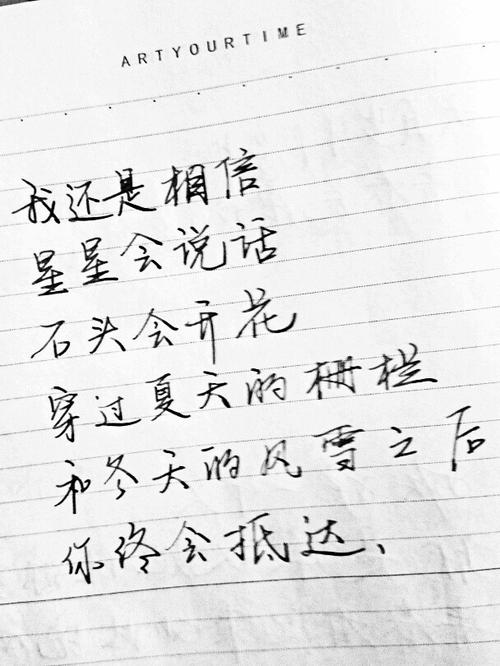 ARTYOURTIME
我还是相信
星星会说话
石头会开花
穿过夏天的栅栏
和冬天的风雪之后
你终会抵达、